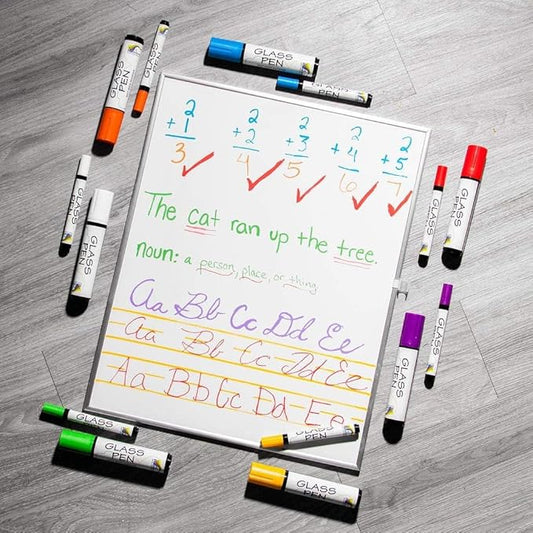 GLASS PEN
GLASS PEN
GLASS PEN
GLASS PEN
2 2 2 2 2
+ 1 + 2 + 3 + 4 + 5
3 4 5 6 7
The cat ran up the tree.
noun: a person, place, or thing
Aa Bb Cc Dd Ee
Aa Bb Cc Dd Ee
Aa Bb Cc Dd Ee
GLASS PEN
GLASS PEN
GLASS PEN
GLASS PEN
GLASS PEN
GLASS PEN
GLASS PEN
GLASS PEN
GLASS PEN
GLASS PEN